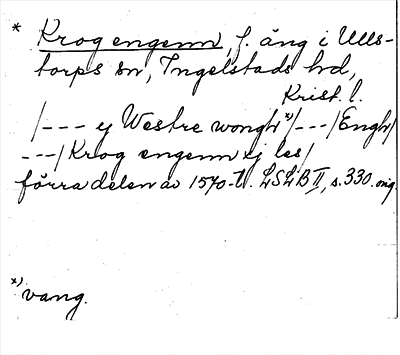 * Krogengenn, f. äng i Ulls-
torps sn, Ingelstads hd,
Krist. l.
/--- ey Westre wongh *)/---/Engh/
---/Krog engenn ej les/
förra delen av 1570-t. LSLB II, s. 330. orig.
*) vang.